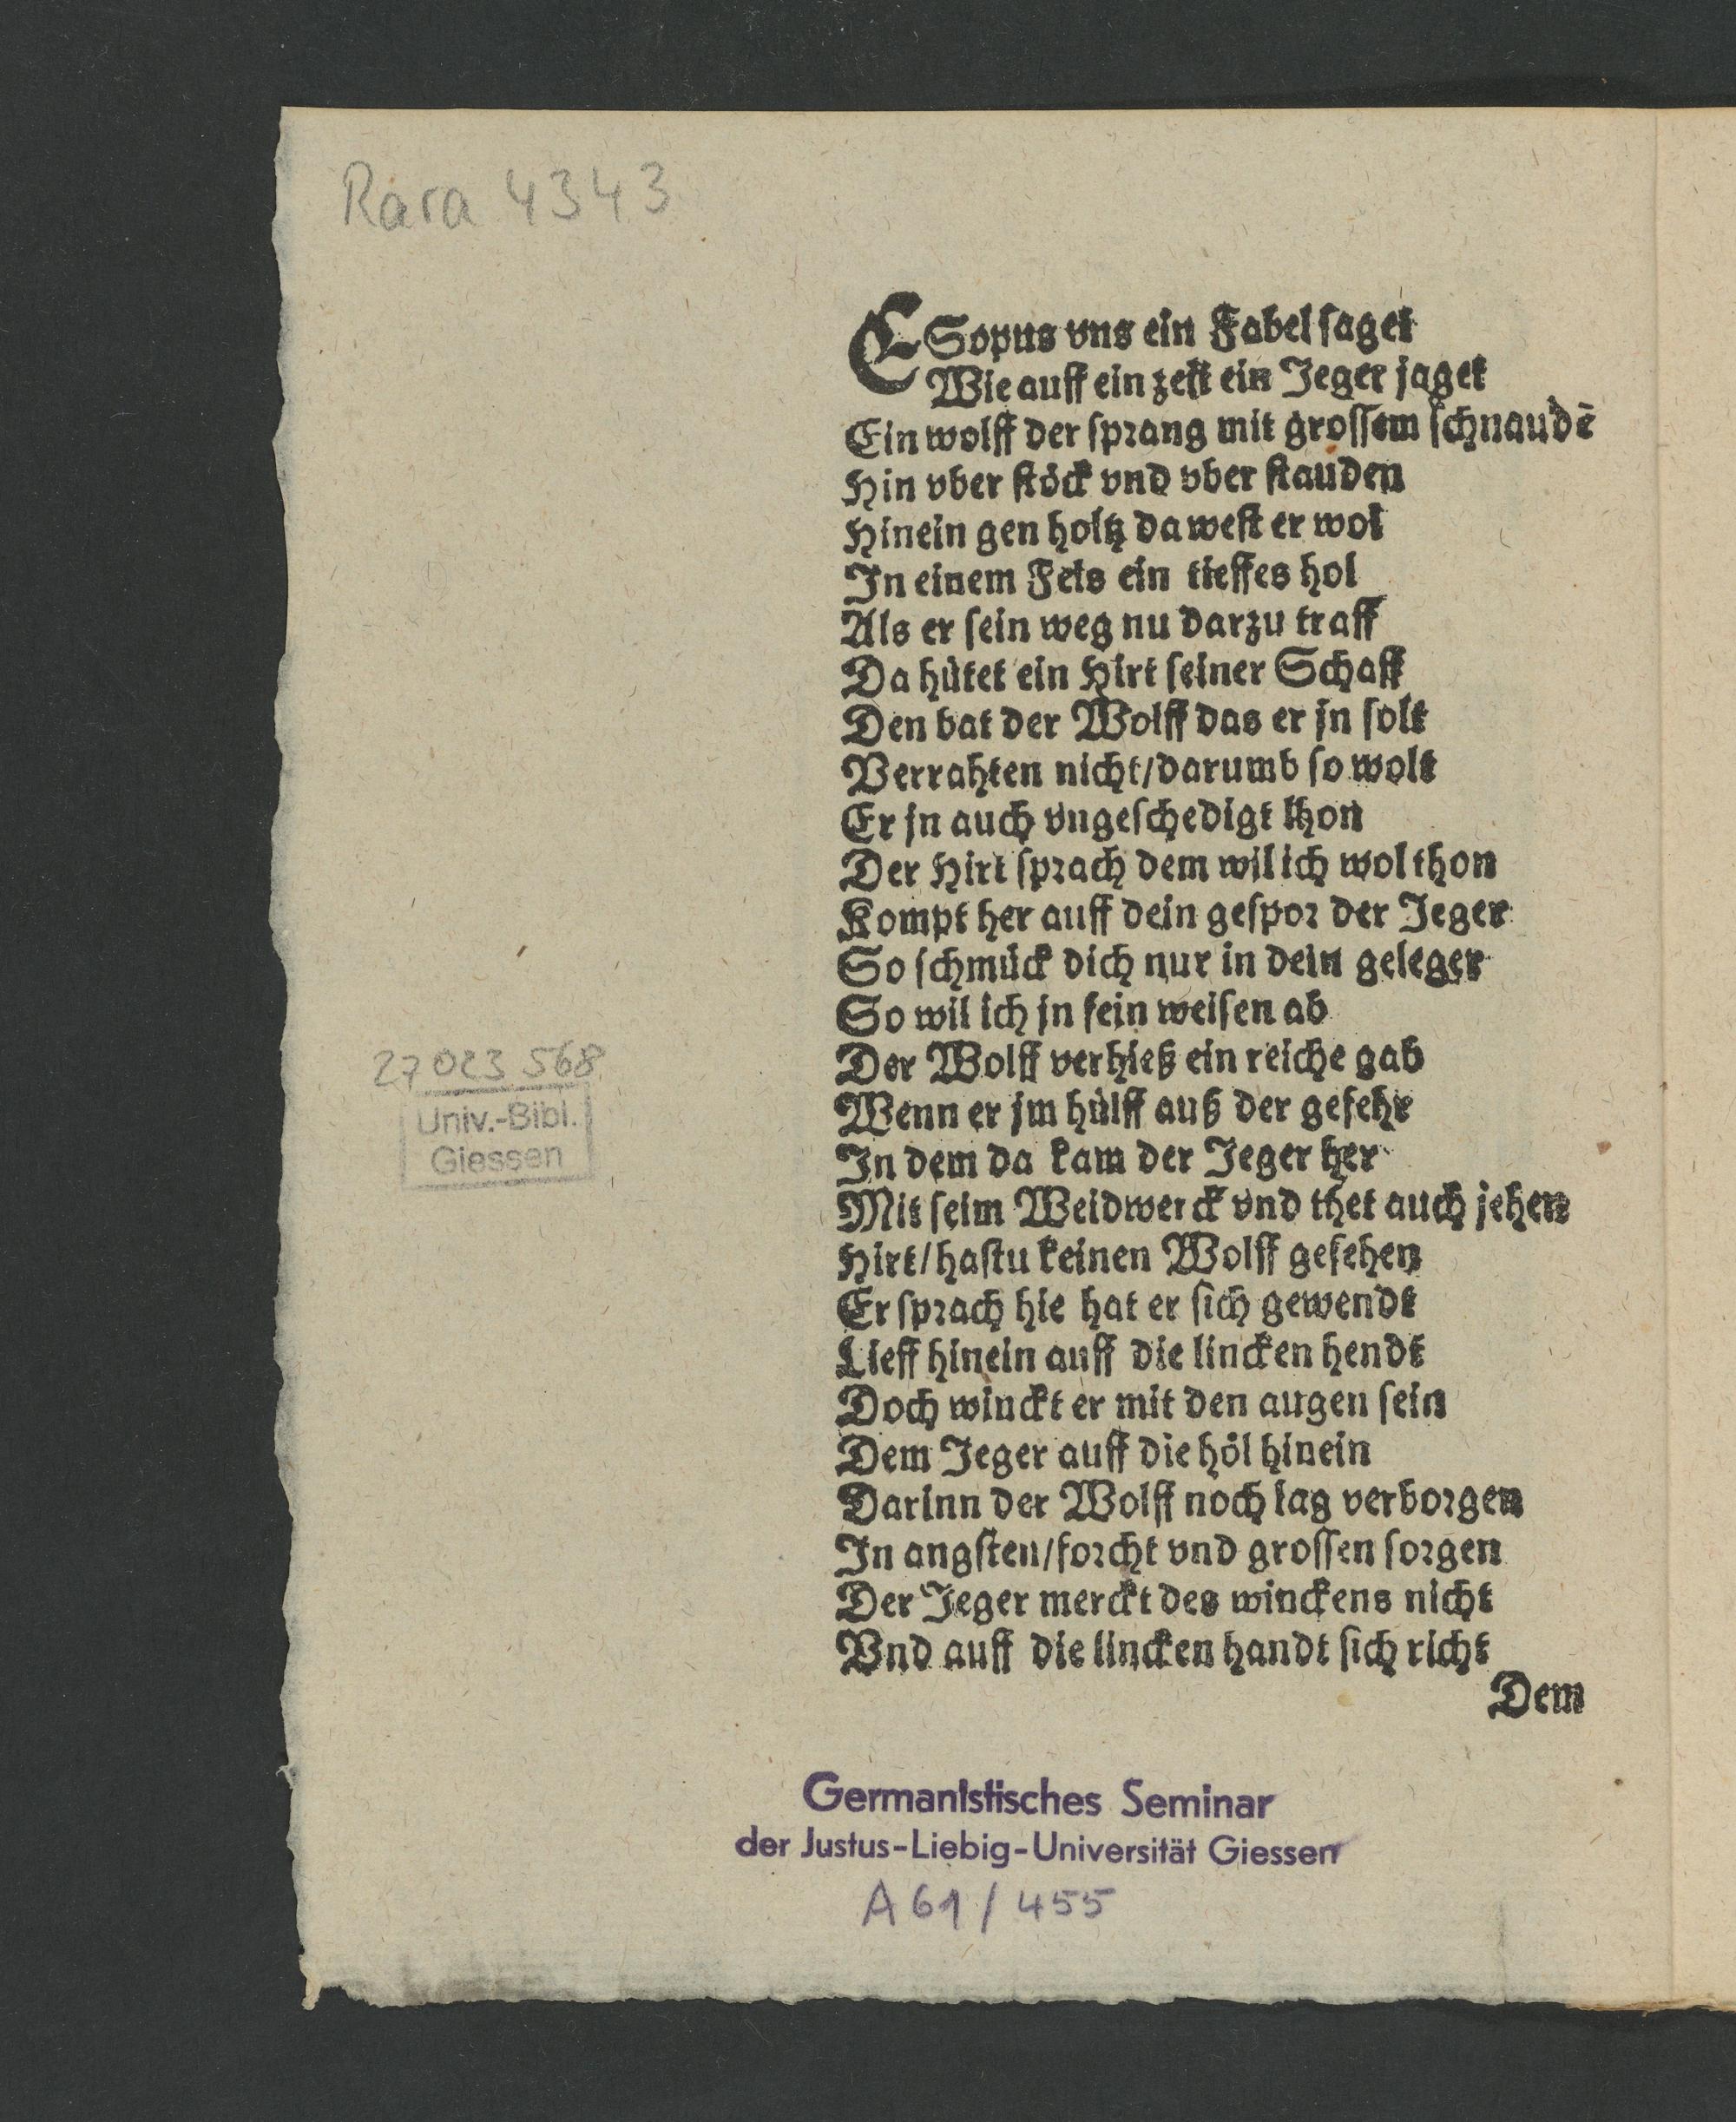 Rara 4343
ESopus vns ein Fabel saget
Wie auff ein zeit ein Jeger jaget
Ein wolff der sprang mit grossem schnaudē
Hin vber stöck vnd vber stauden
Hinein gen holtz da west er wol
In einem Fels ein tieffes hol
Als er sein weg nu darzu traff
Da hütet ein Hirt seiner Schaff
Den bat der Wolff das er jn solt
Verrahten nicht/darumb so wolt
Er jn auch vngeschedigt lhon
Der Hirt sprach dem wil ich wol thon
Kompt her auff dein gespor der Jeger
So schmück dich nur in dein geleger
So wil ich jn fein weisen ab
Der Wolff verhieß ein reiche gab
Wenn er jm hülff auß der gefehr
In dem da kam der Jeger her
Mit seim Weidwerck vnd thet auch jehen
Hirt/hastu keinen Wolff gesehen
Er sprach hie hat er sich gewendt
Lieff hinein auff die lincken hendt
Doch winckt er mit den augen sein
Dem Jeger auff die höl hinein
Darinn der Wolff noch lag verborgen
In angsten/forcht vnd grossen sorgen
Der Jeger merckt des winckens nicht
Vnd auff die lincken handt sich richt
Dem
27 023 568
Univ.-Bibl.
Giessen
Germanistisches Seminar
der Justus-Liebig-Universität Giessen
A 61 / 455